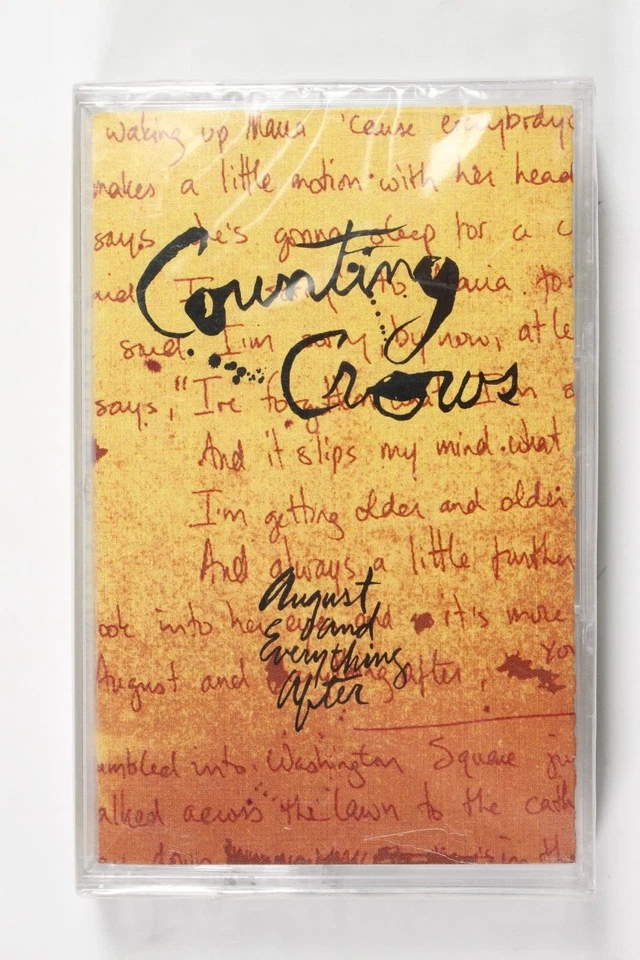 waking up Maria 'cause everybody
makes a little motion with her head
says he's gonna sleep for a
Counting
Maria
said I'm sorry, by now, at le
Crows
says, "I've
And it slips my mind what
I'm getting older and older
And always a little further
August
and
Everything
After
ook into her it's more
August and after, you
umbled into Washington Square ju
alked across the lawn to the cath
down in th